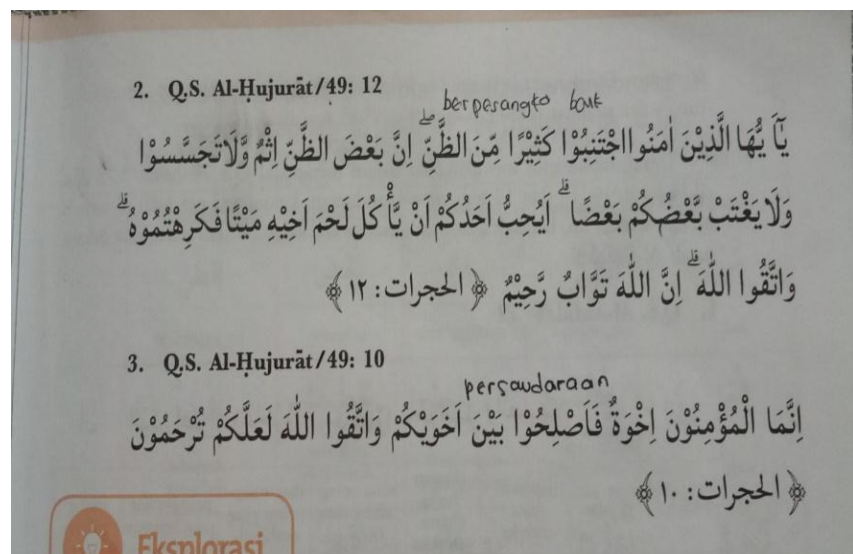 2. Q.S. Al-Ḥujurāt/49: 12
berpesangko baik
يٰٓاَ يُّهَا الَّذِيْنَ اٰمَنُوا اجْتَنِبُوْا كَثِيْرًا مِّنَ الظَّنِّۖ اِنَّ بَعْضَ الظَّنِّ اِثْمٌ وَّلَا تَجَسَّسُوْا
وَلَا يَغْتَبْ بَّعْضُكُمْ بَعْضًاۗ اَيُحِبُّ اَحَدُكُمْ اَنْ يَّأْكُلَ لَحْمَ اَخِيْهِ مَيْتًا فَكَرِهْتُمُوْهُۗ
وَاتَّقُوا اللّٰهَۗ اِنَّ اللّٰهَ تَوَّابٌ رَّحِيْمٌ ﴿ الحجرات : ١٢ ﴾
3. Q.S. Al-Ḥujurāt/49: 10
persaudaraan
اِنَّمَا الْمُؤْمِنُوْنَ اِخْوَةٌ فَاَصْلِحُوْا بَيْنَ اَخَوَيْكُمْ وَاتَّقُوا اللّٰهَ لَعَلَّكُمْ تُرْحَمُوْنَ
﴿ الحجرات : ١٠ ﴾
Eksplorasi